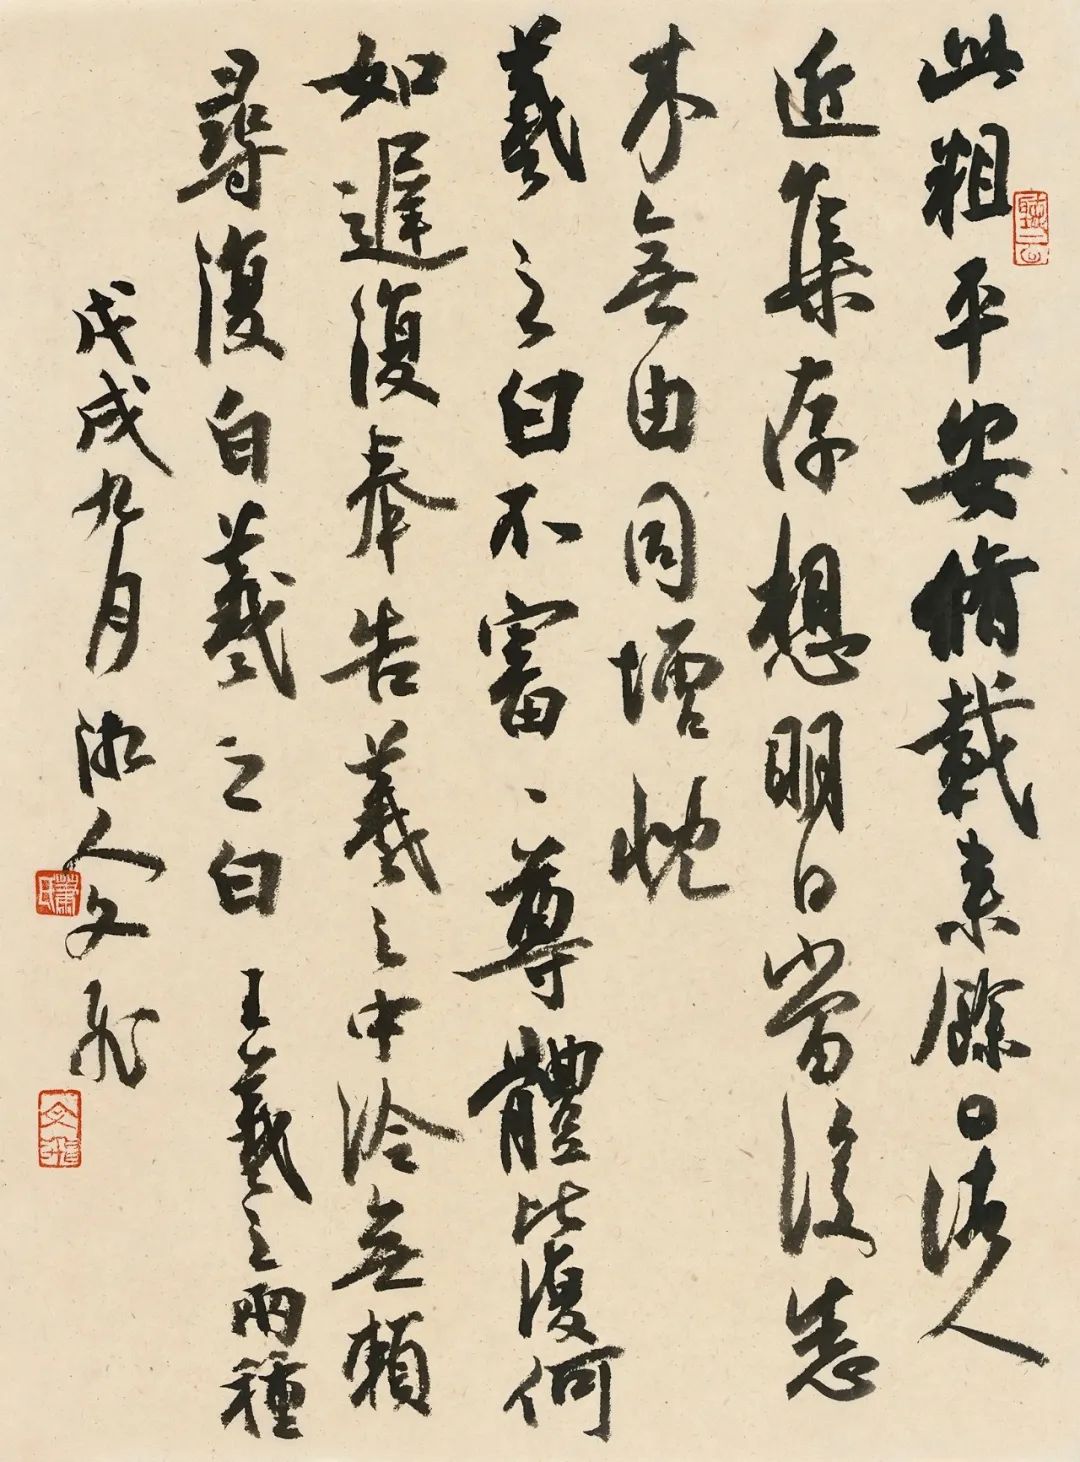 此粗平安脩載来餘日諸人
近集存想明日當復悉
来無由同增慨
羲之白不審、尊體比復何
如遲復奉告羲之中冷無賴
尋復白羲之白 王羲之兩種
戊戌九月湘人文飛
蕭氏
文飛